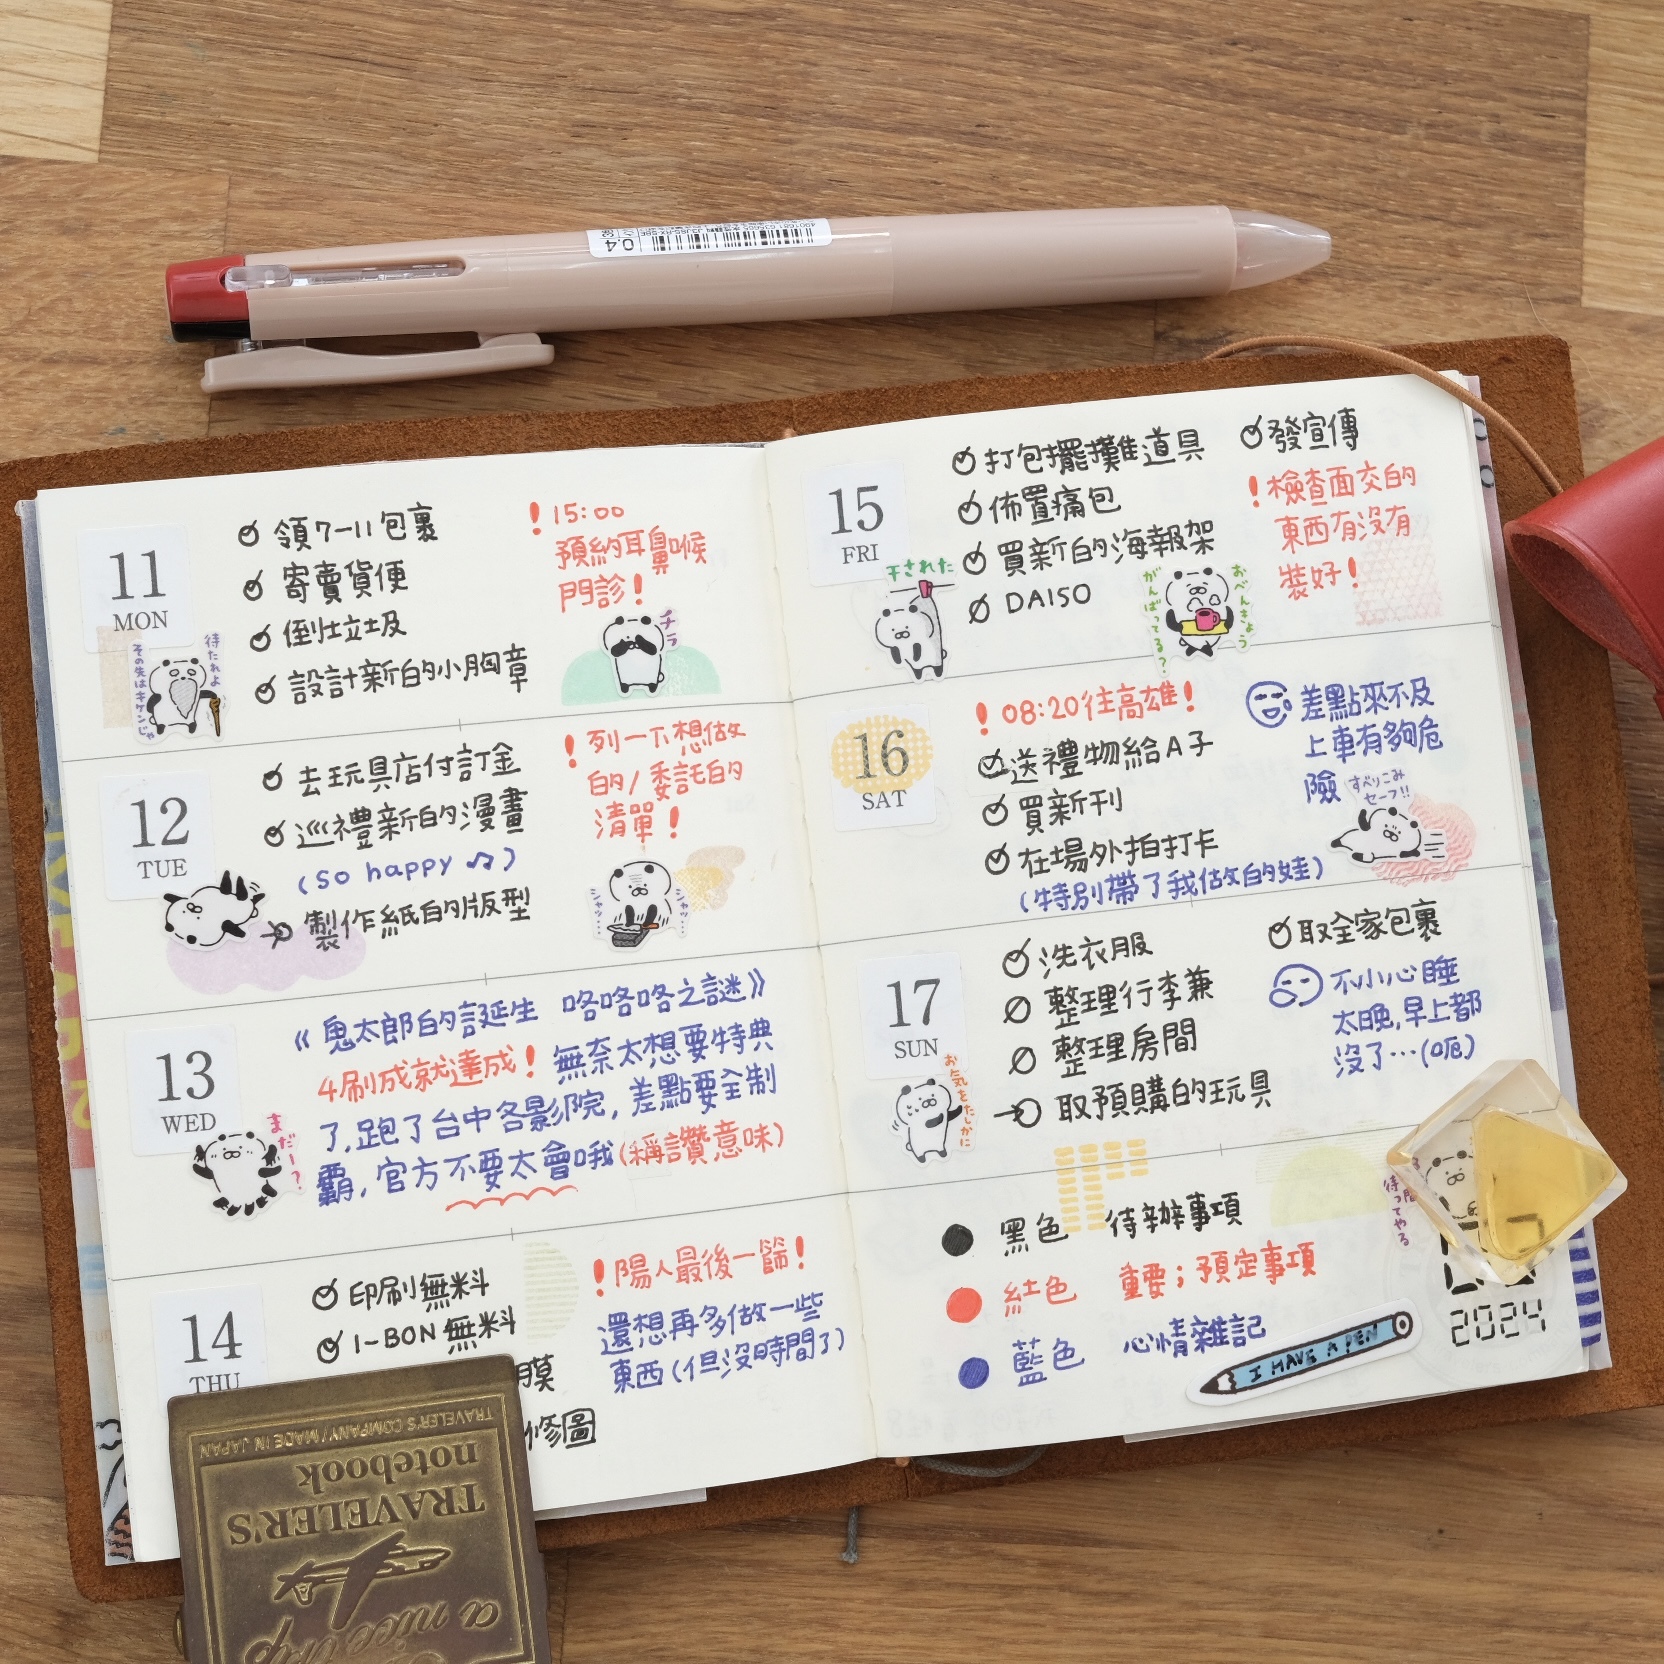 0.4
11
MON
領7-11包裹
寄賣貨便
倒垃圾
設計新的小胸章
!15:00
預約耳鼻喉
門診!
チラ
待たれよ
その先はキケンじゃ
12
TUE
去玩具店付訂金
巡禮新的漫畫
(so happy ♫)
製作紙的版型
!列一下想做
的/委託的
清單!
シャッ…
シャッ…
13
WED
《鬼太郎的誕生 咯咯咯之謎》
4刷成就達成!無奈太想要特典
了,跑了台中各影院,差點要全制
霸,官方不要太會哦(稱讚意味)
まだー?
14
THU
印刷無料
I-BON無料
膜
修圖
!陽人最後一篩!
還想再多做一些
東西(但沒時間了)
15
FRI
打包擺攤道具
佈置痛包
買新的海報架
DAISO
發宣傳
!檢查面交的
東西有沒有
裝好!
干された
がんばってる?
おべんきょう
16
SAT
!08:20往高雄!
送禮物給A子
買新刊
在場外拍打卡
(特別帶了我做的娃)
差點來不及
上車有夠危
險
すべりこみ
セーフ!!
17
SUN
洗衣服
整理行李兼
整理房間
取預購的玩具
取全家包裹
不小心睡
太晚,早上都
沒了…(呃)
お気をたしかに
黑色 待辦事項
紅色 重要;預定事項
藍色 心情雜記
待ってやる
2024
I HAVE A PEN
TRAVELER'S COMPANY / MADE IN JAPAN
TRAVELER'S
notebook
a nice trip